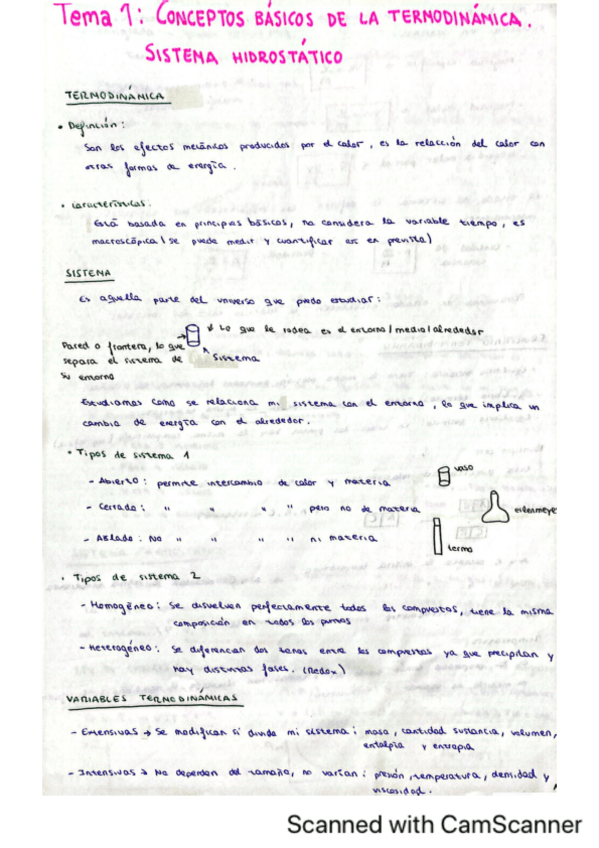 Tema 1: CONCEPTOS BÁSICOS DE LA TERMODINÁMICA.
SISTEMA HIDROSTÁTICO
TERMODINÁMICA
• Definición:
Son los efectos mecánicos producidos por el calor, es la relacción del calor con
otras formas de energía.
• Características.
Está basada en principios básicos, no considera la variable tiempo, es
macroscópica (se puede medir y cuantificar en prevista)
SISTEMA
Es aquella parte del universo que puedo estudiar:
Lo que le rodea es el entorno/medio/alrededor
Pared o frontera, lo que
separa el sistema de
su entorno
Sistema
Estudiamos como se relaciona mi sistema con el entorno, lo que implica un
cambio de energía con el alrededor.
• Tipos de sistema 1
- Abierto: permite intercambio de calor y materia
vaso
- Cerrado: " " " " pero no de materia
erlenmeye
- Aislado: No " " " " ni materia
termo
• Tipos de sistema 2
- Homogéneo: Se disuelven perfectamente todos los compuestos, tiene la misma
composición en todos los puntos
- Heterogéneo: Se diferencian dos zonas entre los compuestos ya que precipitan y
hay distintas fases. (Redox)
VARIABLES TERMODINÁMICAS
- Extensivas → Se modifican si divido mi sistema: masa, cantidad sustancia, volumen,
entalpía y entropia
- Intensivas → No dependen del tamaño, no varían: presión, temperatura, densidad y
viscosidad.
Scanned with CamScanner